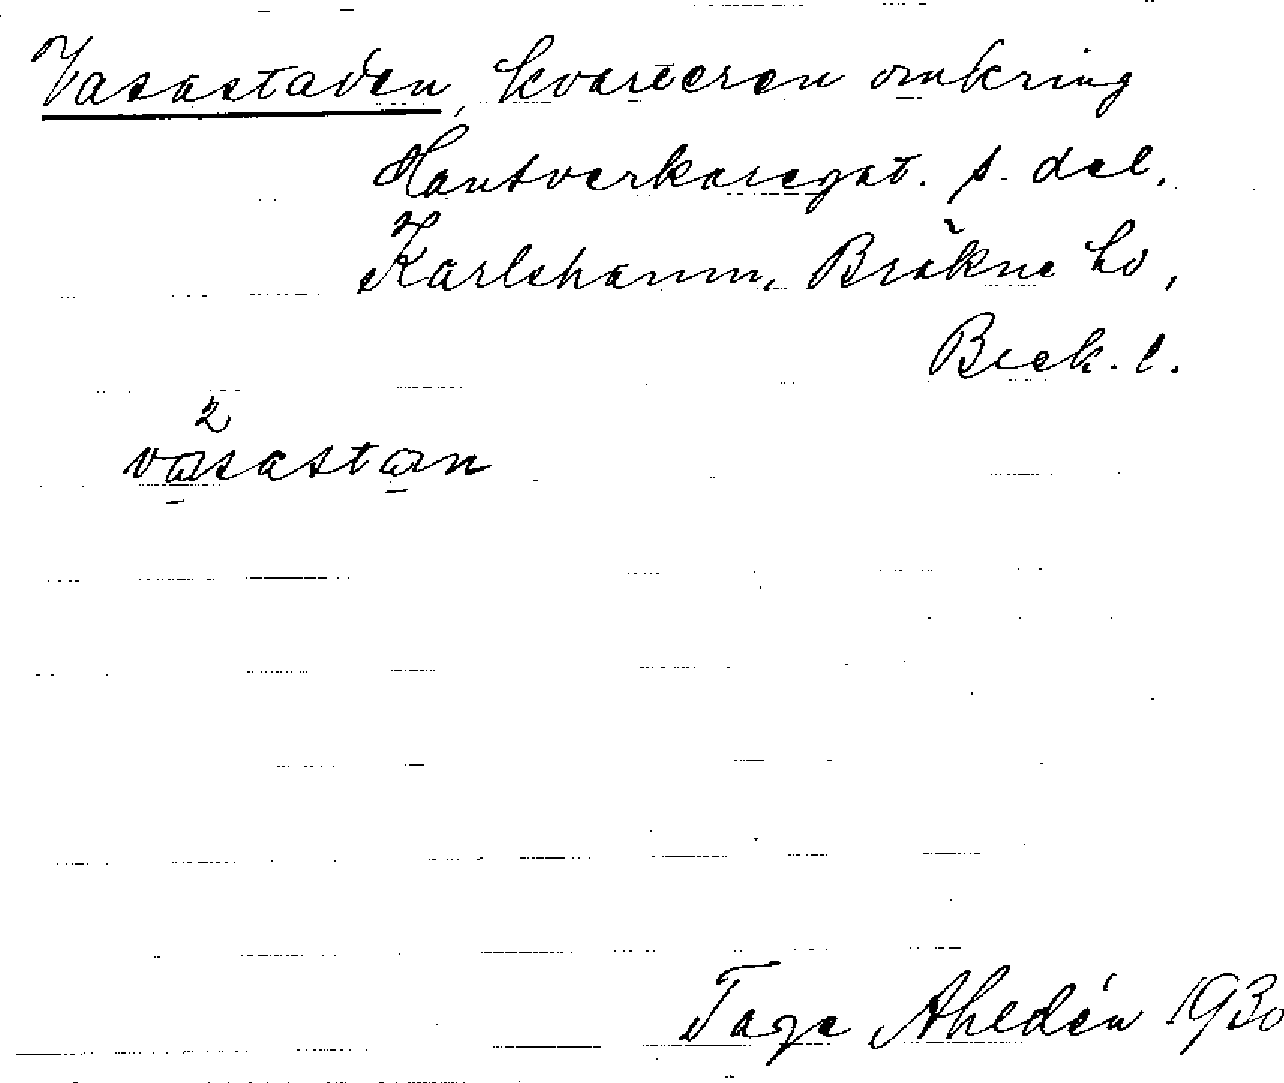 Vasastaden, kvarteren omkring
Hantverkaregat. s. del,
Karlshamn, Bräkne hd,
Blek. l.
2
vasastan
Tage Ahldén 1930